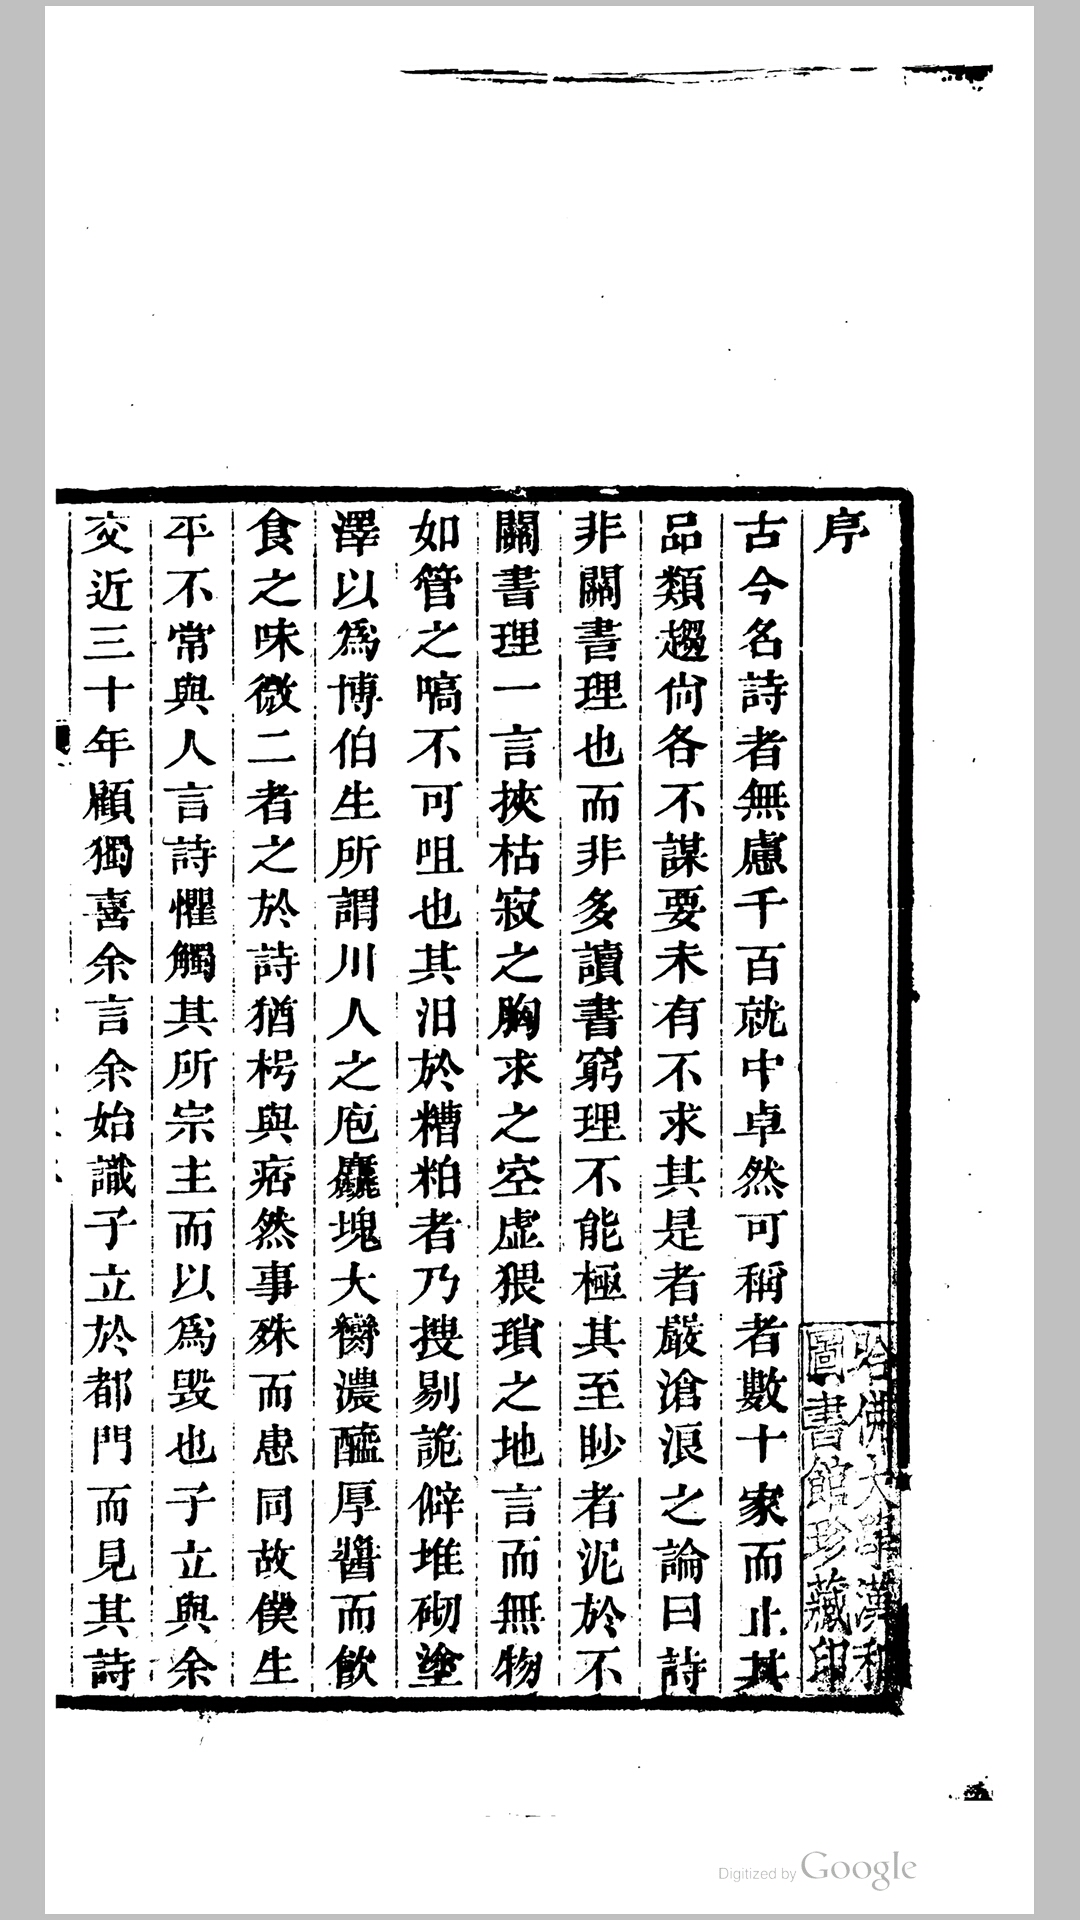 序
古今名詩者無慮千百就中卓然可稱者數十家而止其
品類趨尙各不謀要未有不求其是者嚴滄浪之論曰詩
非關書理也而非多讀書窮理不能極其至眇者泥於不
關書理一言挾枯寂之胸求之空虛猥瑣之地言而無物
如管之嗃不可咀也其汨於糟粕者乃搜剔詭僻堆砌塗
澤以爲博伯生所謂川人之庖麤塊大臠濃醯厚醬而飲
食之味微二者之於詩猶枵與痞然事殊而患同故僕生
平不常與人言詩懼觸其所宗主而以爲毁也子立與余
交近三十年顧獨喜余言余始識子立於都門而見其詩
哈佛大學漢和
圖書館珍藏印
Digitized by Google